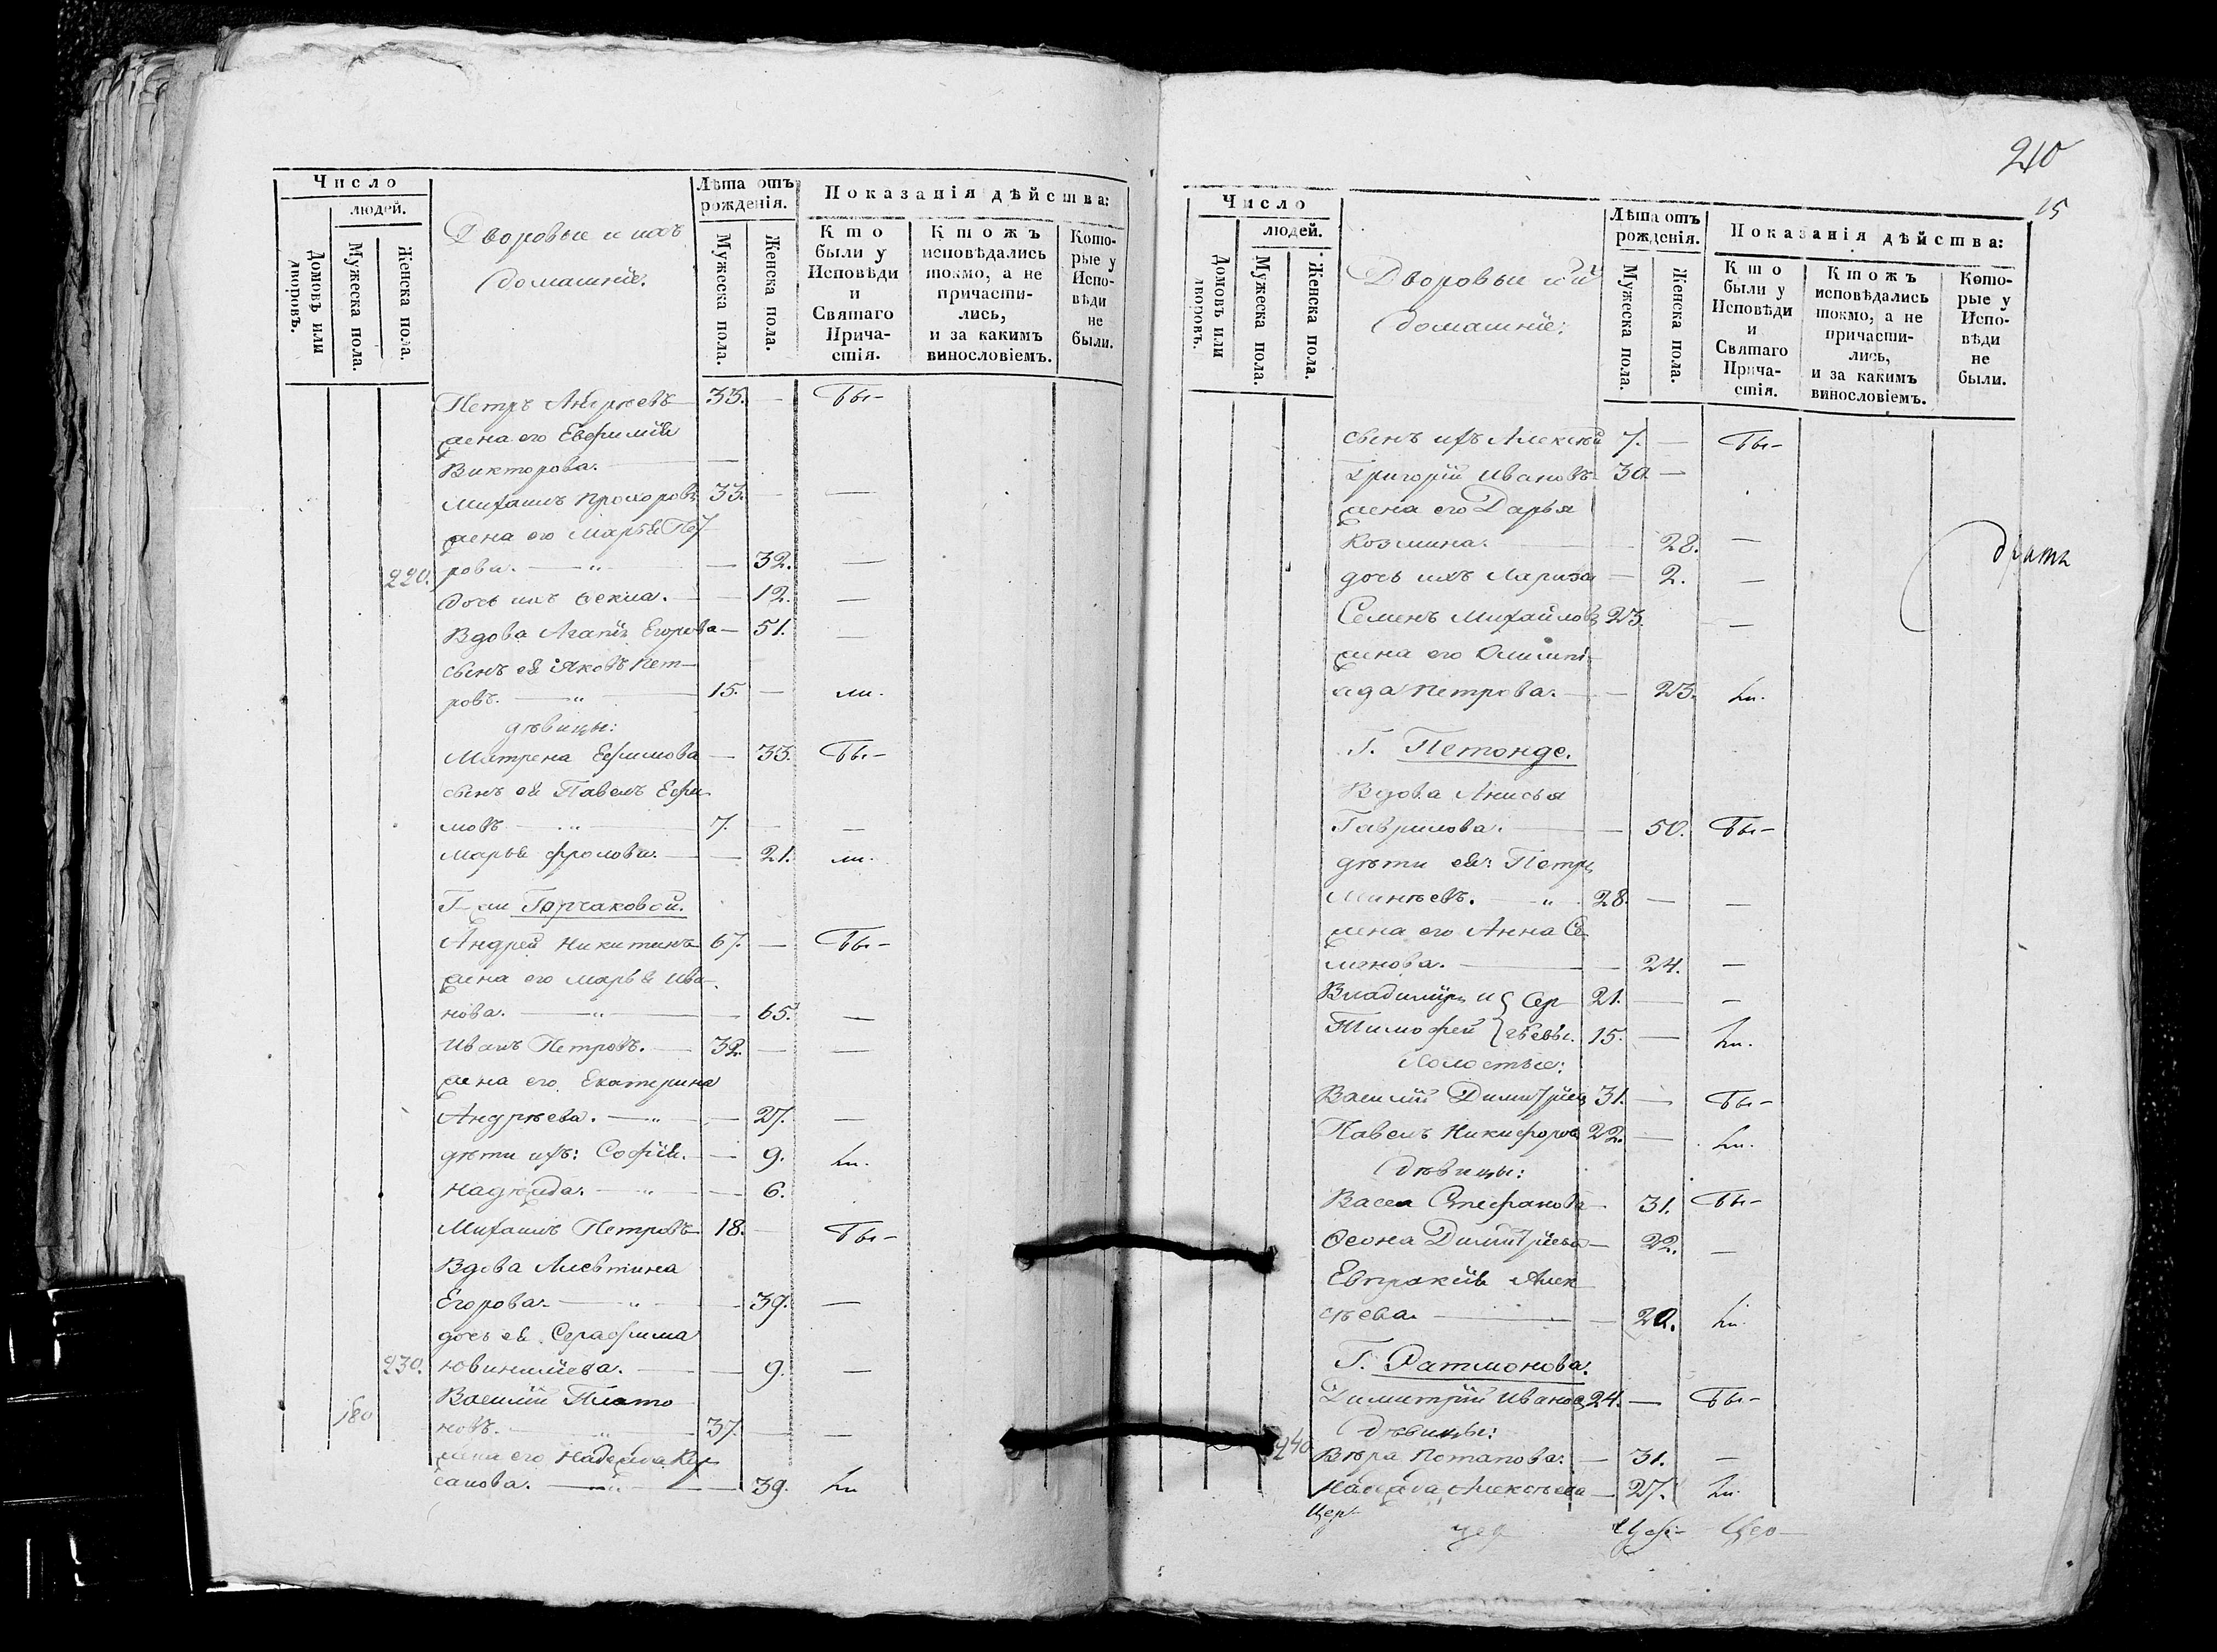 Число
людей.
Домовъ или дворовъ.
Мужеска пола.
Женска пола.
Дворовые и ихъ
домашніе.
Лѣта отъ
рожденія.
Мужеска пола.
Женска пола.
Показанія дѣйства:
Кто
были у
Исповѣди
и
Святаго
Прича-
стія.
Ктожъ
исповѣдались
токмо, а не
причасти-
лись,
и за какимъ
винословіемъ.
Кото-
рые у
Испо-
вѣди
не
были.
Петръ Андреевъ 33. — Бы-
жена его Евфимія
Викторова. —
Михаилъ Прохоровъ 33. — —
жена его Марья Пет
220. рова. — " — 32. —
дочь ихъ Фекла. — 12. —
Вдова Агапія Егорова — 51. —
сынъ ея Яковъ Пет-
ровъ. — " — 15. — ли.
дѣвицы:
Матрена Ефимова — 33. Бы-
сынъ ея Павелъ Ефи
мовъ — " — 7. — —
Марья Фролова. — 21. ли.
Г-жи Горчаковой.
Андрей Никитинъ 67. — Бы-
жена его Марья Ива-
нова. — " — 65. —
Иванъ Петровъ. — 32. — —
жена его Екатерина
Андреева. — " — 27. —
дѣти ихъ: Софія. — 9. ли.
Надежда. — " — 6.
Михаилъ Петровъ 18. — Бы-
Вдова Алевтина
Егорова. — " — 39. —
дочь ея Серафима
230. Ювиналіева. — 9. —
Василій Плато
180 новъ. — " — 37. — —
жена его Надежда
санова. — " — 39. ли
210
15
Число
людей.
Домовъ или дворовъ.
Мужеска пола.
Женска пола.
Дворовые и и
домашніе:
Лѣта отъ
рожденія.
Мужеска пола.
Женска пола.
Показанія дѣйства:
Кто
были у
Исповѣди
и
Святаго
Прича-
стія.
Ктожъ
исповѣдались
токмо, а не
причасти-
лись,
и за какимъ
винословіемъ.
Кото-
рые у
Испо-
вѣди
не
были.
сынъ ихъ Алексѣй 7. — Бы-
Григорій Ивановъ 30. —
жена его Дарья
Козмина. — 28. —
дочь ихъ Лариза — 2. —
Семенъ Михайловъ 23. —
жена его Олимпі-
ада Петрова. — 23. ли.
Г. Петонде.
Вдова Анисья
Гаврилова. — 50. Бы-
дѣти ея: Петръ
Минѣевъ. — " 28. — —
жена его Анна Се
менова. — 24. —
Владиміръ и Сер 21. — —
Тимофей гѣевы. 15. — ли.
Холостые:
Василій Димитріев 31. — Бы-
Павелъ Никифоров 22. — ли.
Дѣвицы:
Васса Стефанова — 31. Бы-
Ѳеона Димитріева — 22. —
Евпраксія Алек
сѣева. — 20. ли.
Г. Ратмонова.
Димитрій Иванов 24. — Бы-
Дѣвицы:
240 Вѣра Потапова. — 31. —
Надежда Алексѣева — 27. ли.
Цер-